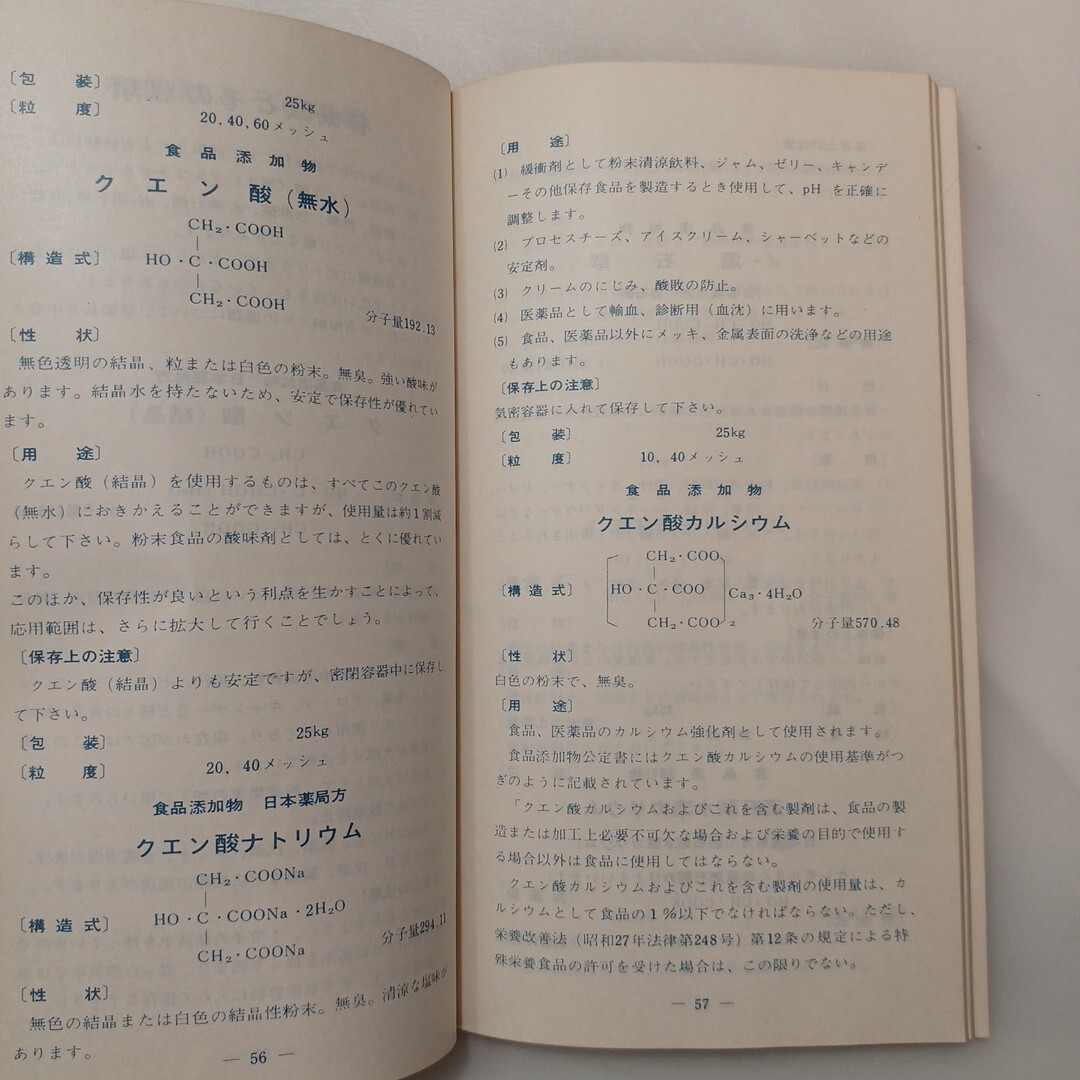 〔包　　装〕　25kg
〔粒　　度〕　20, 40, 60メッシュ
食品添加物
クエン酸（無水）
CH₂・COOH
|
〔構造式〕　HO・C・COOH
|
CH₂・COOH
分子量192.13
〔性　　状〕
無色透明の結晶、粒または白色の粉末。無臭。強い酸味が
あります。結晶水を持たないため、安定で保存性が優れてい
ます。
〔用　　途〕
クエン酸（結晶）を使用するものは、すべてこのクエン酸
（無水）におきかえることができますが、使用量は約1割減
らして下さい。粉末食品の酸味剤としては、とくに優れてい
ます。
このほか、保存性が良いという利点を生かすことによって、
応用範囲は、さらに拡大して行くことでしょう。
〔保存上の注意〕
クエン酸（結晶）よりも安定ですが、密閉容器中に保存し
て下さい。
〔包　　装〕　25kg
〔粒　　度〕　20, 40メッシュ
食品添加物　日本薬局方
クエン酸ナトリウム
CH₂・COONa
|
〔構造式〕　HO・C・COONa・2H₂O
|
CH₂・COONa
分子量294.11
〔性　　状〕
無色の結晶または白色の結晶性粉末。無臭。清涼な塩味が
あります。
― 56 ―
〔用　　途〕
(1)　緩衝剤として粉末清涼飲料、ジャム、ゼリー、キャンデ
ーその他保存食品を製造するとき使用して、pH を正確に
調整します。
(2)　プロセスチーズ、アイスクリーム、シャーベットなどの
安定剤。
(3)　クリームのにじみ、酸敗の防止。
(4)　医薬品として輸血、診断用（血沈）に用います。
(5)　食品、医薬品以外にメッキ、金属表面の洗浄などの用途
もあります。
〔保存上の注意〕
気密容器に入れて保存して下さい。
〔包　　装〕　25kg
〔粒　　度〕　10, 40メッシュ
食品添加物
クエン酸カルシウム
CH₂・COO
|
〔構造式〕　HO・C・COO　Ca₃・4H₂O
|
CH₂・COO　₂
分子量570.48
〔性　　状〕
白色の粉末で、無臭。
〔用　　途〕
食品、医薬品のカルシウム強化剤として使用されます。
食品添加物公定書にはクエン酸カルシウムの使用基準がつ
ぎのように記載されています。
「クエン酸カルシウムおよびこれを含む製剤は、食品の製
造または加工上必要不可欠な場合および栄養の目的で使用す
る場合以外は食品に使用してはならない。
クエン酸カルシウムおよびこれを含む製剤の使用量は、カ
ルシウムとして食品の1％以下でなければならない。ただし、
栄養改善法（昭和27年法律第248号）第12条の規定による特
殊栄養食品の許可を受けた場合は、この限りでない。
― 57 ―